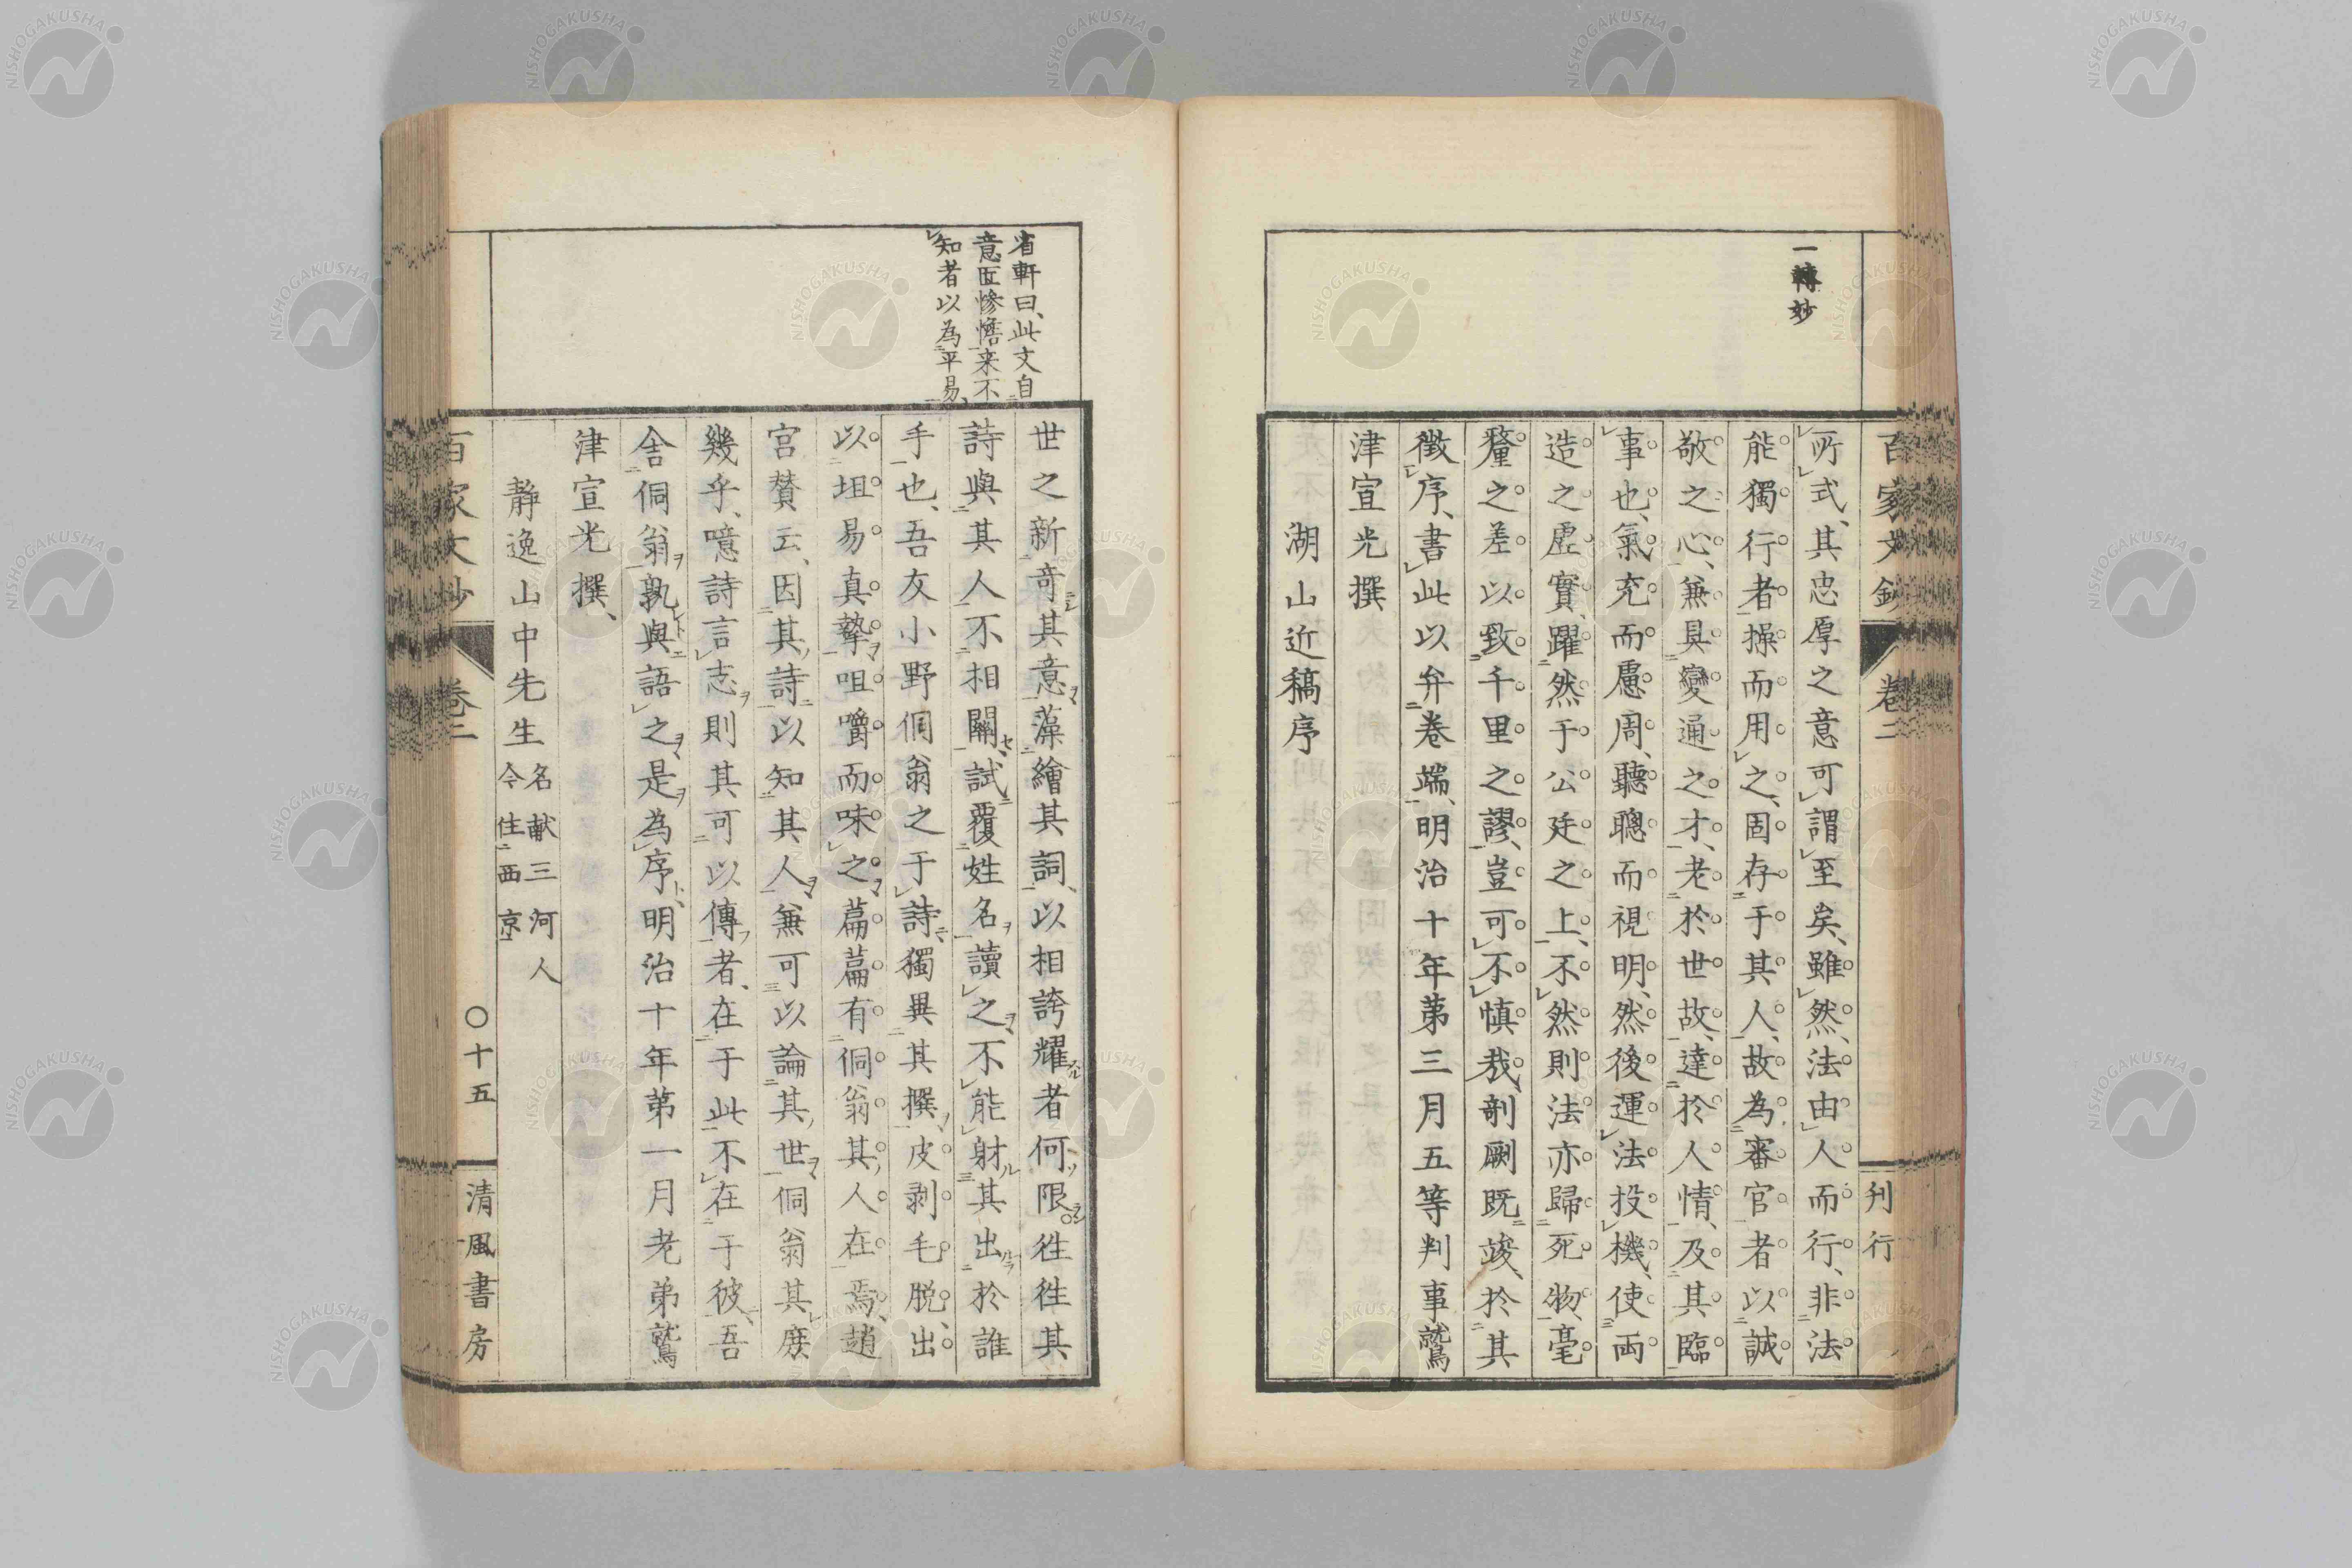 一轉妙
所式、其忠厚之意可謂至矣、雖然、法由人而行、非法
能獨行者、操而用之、固存于其人、故為審官者以誠
敬之心、兼具變通之才、老於世故、達於人情、及其臨
事也、氣充而慮周、聽聰而視明、然後運法投機、使兩
造之虛實、躍然于公廷之上、不然則法亦歸死物、毫
釐之差以致千里之謬、豈可不慎哉、剞劂既竣、於其
徵序、書此以弁巻端、明治十年第三月五等判事鷲
津宣光撰
湖山近稿序
百家文鈔
卷二
刊行
省軒曰、此文自
意匠慘憺来不
知者以為平易、
世之新奇其意藻繪其詞、以相誇耀者何限。徃徃其
詩與其人不相關、試覆姓名讀之不能射其出於誰
手也、吾友小野侗翁之于詩獨異其撰、皮剥毛脱、出
以坦易真摯、咀嚼而味之、篇篇有侗翁其人在焉、趙
宮贊云、因其詩以知其人、兼可以論其世、侗翁其庶
幾乎、噫詩言志、則其可以傳者、在于此不在于彼、吾
舎侗翁孰與語之、是為序、明治十年第一月老弟鷲
津宣光撰、
靜逸山中先生 名献三河人
今住西京
百家文鈔
卷二
〇十五
清風書房